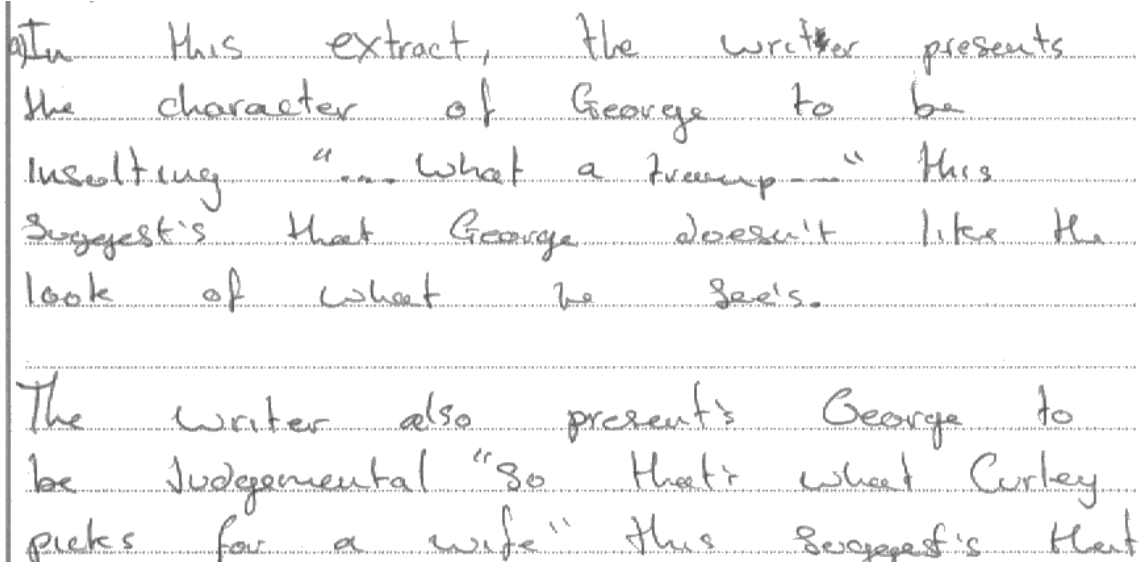 a) In this extract, the writer presents
the character of George to be
insulting "... what a tramp---" this
suggest's that George doesn't like the
look of what he see's.
The writer also present's George to
be Judgemental "So that's what Curley
picks for a wife" this suggest's that